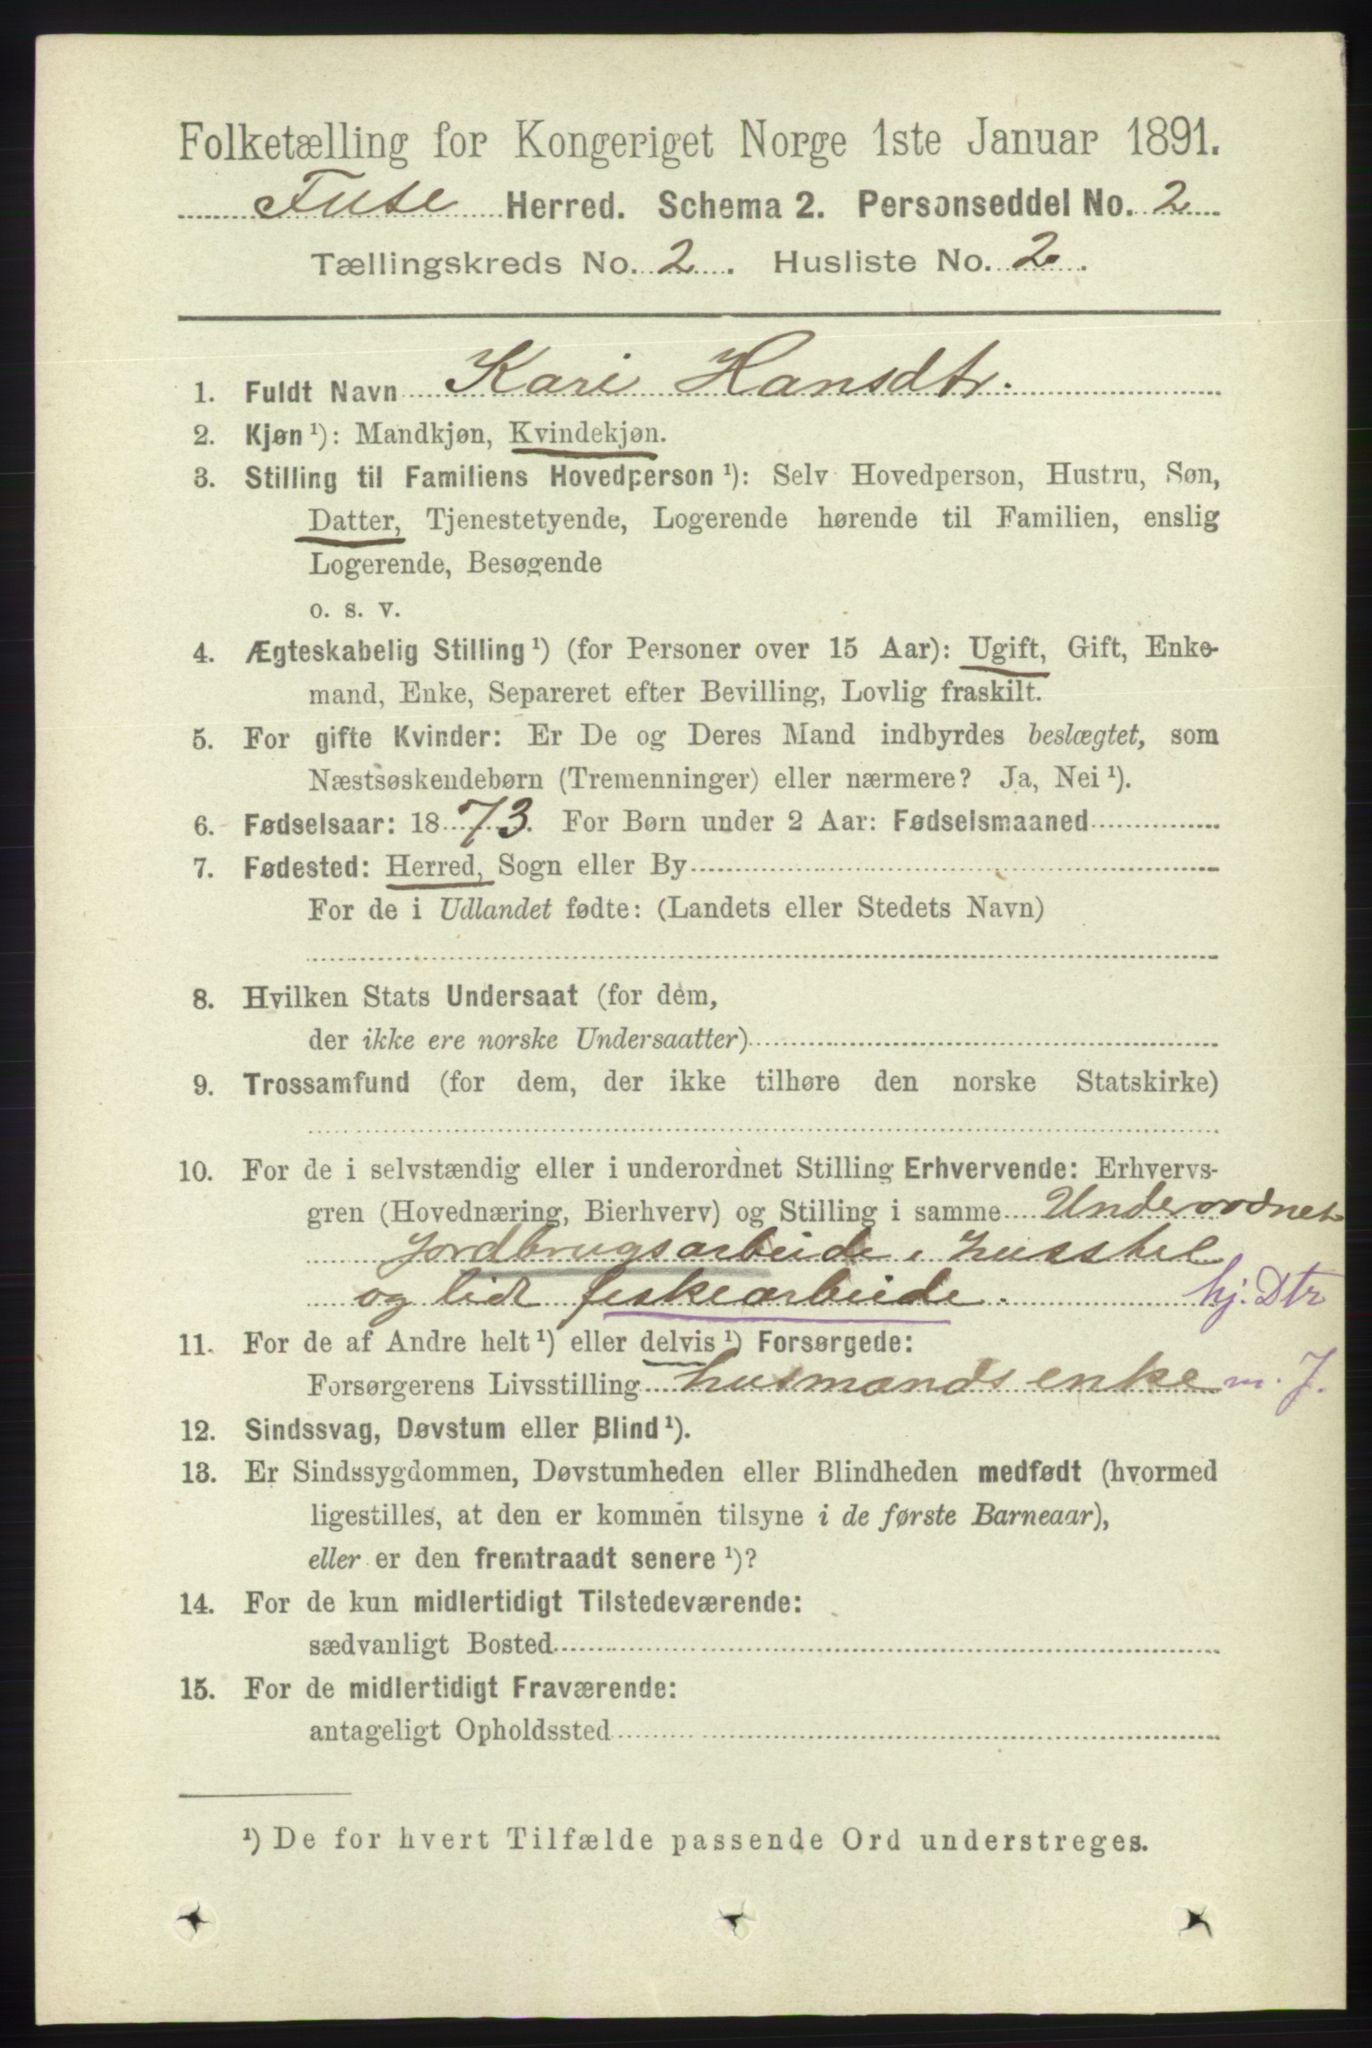 Folketælling for Kongeriget Norge 1ste Januar 1891.
Fuse Herred. Schema 2. Personseddel No. 2
Tællingskreds No. 2. Husliste No. 2.
1. Fuldt Navn Kari Hansdtr.
2. Kjøn ¹): Mandkjøn, Kvindekjøn.
3. Stilling til Familiens Hovedperson ¹): Selv Hovedperson, Hustru, Søn,
Datter, Tjenestetyende, Logerende hørende til Familien, enslig
Logerende, Besøgende
o. s. v.
4. Ægteskabelig Stilling ¹) (for Personer over 15 Aar): Ugift, Gift, Enke-
mand, Enke, Separeret efter Bevilling, Lovlig fraskilt.
5. For gifte Kvinder: Er De og Deres Mand indbyrdes beslægtet, som
Næstsøskendebørn (Tremenninger) eller nærmere? Ja, Nei ¹).
6. Fødselsaar: 1873. For Børn under 2 Aar: Fødselsmaaned
7. Fødested: Herred, Sogn eller By
For de i Udlandet fødte: (Landets eller Stedets Navn)
8. Hvilken Stats Undersaat (for dem,
der ikke ere norske Undersaatter)
9. Trossamfund (for dem, der ikke tilhøre den norske Statskirke)
10. For de i selvstændig eller i underordnet Stilling Erhvervende: Erhvervs-
gren (Hovednæring, Bierhverv) og Stilling i samme Underordnet
jordbrugsarbeide, husstel
og lidt fiskearbeide. hj. Dtr
11. For de af Andre helt ¹) eller delvis ¹) Forsørgede:
Forsørgerens Livsstilling husmands enke m. J.
12. Sindssvag, Døvstum eller Blind ¹).
13. Er Sindssygdommen, Døvstumheden eller Blindheden medfødt (hvormed
ligestilles, at den er kommen tilsyne i de første Barneaar),
eller er den fremtraadt senere ¹)?
14. For de kun midlertidigt Tilstedeværende:
sædvanligt Bosted
15. For de midlertidigt Fraværende:
antageligt Opholdssted
¹) De for hvert Tilfælde passende Ord understreges.